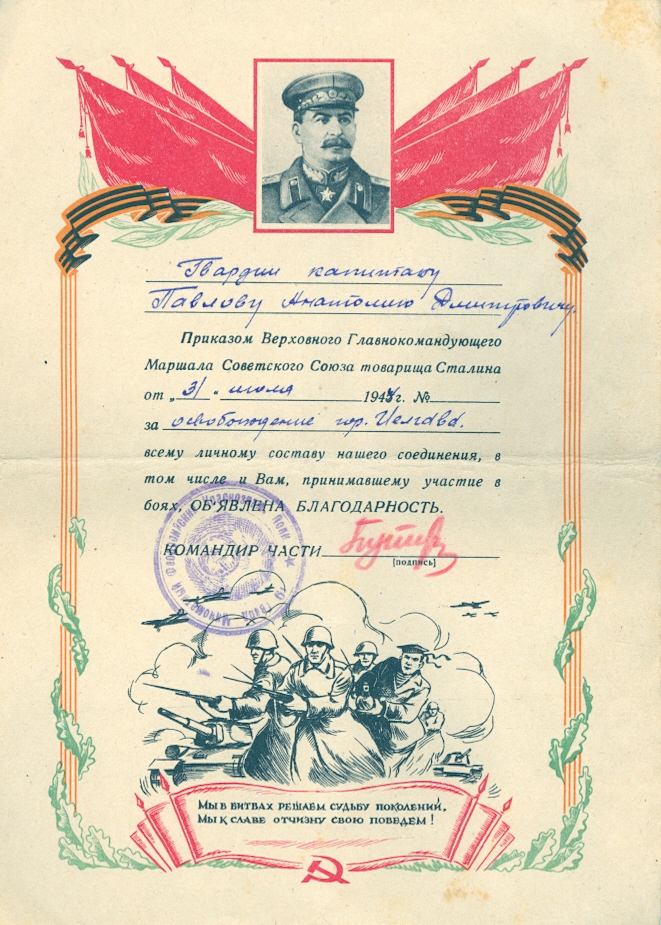 Гвардии капитану
Павлову Анатолию Дмитровичу.
Приказом Верховного Главнокомандующего
Маршала Советского Союза товарища Сталина
от „31" июля 1944 г. №
за освобождение гор. Иелгава.
всему личному составу нашего соединения, в
том числе и Вам, принимавшему участие в
боях, ОБ'ЯВЛЕНА БЛАГОДАРНОСТЬ.
КОМАНДИР ЧАСТИ
[подпись]
МЫ В БИТВАХ РЕШАЕМ СУДЬБУ ПОКОЛЕНИЙ,
МЫ К СЛАВЕ ОТЧИЗНУ СВОЮ ПОВЕДЕМ!